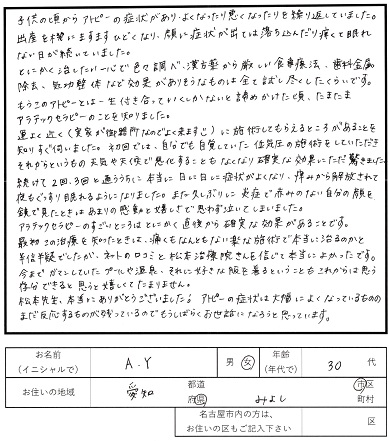 子供の頃からアトピーの症状があり、よくなったり悪くなったりを繰り返していました。
出産を機にますますひどくなり、顔に症状が出ては落ち込んだり痛くて眠れ
ない日が続いていました。
とにかく治したい一心で色々調べ、漢方薬から厳しい食事療法、歯科金属
除去、気功整体など効果がありそうなものは全て試し尽くしたくらいです。
もうこのアトピーとは一生付き合っていくしかないと諦めかけた頃、たまたま
アラテックセラピーのことを知りました。
運よく近く(実家が御器所なのでよく来ます)に施術してもらえるところがあることを
知りすぐ伺いました。初回では、自分でも自覚していた
それからというもの
続けて2回、3回と通ううちに本当に日に日に症状がよくなり、痒みから解放されて
夜もぐっすり眠れるようになりました。また久しぶりに炎症で赤みのない自分の顔を
鏡で見たときはあまりの感動と嬉しさで思わず泣いてしまいました。
セラピーのすごいところはとにかく直後から確実な効果があることです。
最初この治療を知ったときは、痛くもなんともない楽な施術で本当に治るのかと
半信半疑でしたが、ネットの口コミと松本治療院さんを信じて本当によかったです。
今までガマンしていたプールや温泉、それに好きな服を着るということもこれからは思う
存分できると思うと嬉しくてたまりません。
松本先生、本当にありがとうございました！アトピーの症状は大幅によくなっているものの
まだ反応するものが残っているのでもうしばらくお世話になろうと思っています。
お名前
(イニシャルで)
A.Y
男 女
年齢
(年代で)
30 代
お住いの地域
愛知
都道
府県
みよし
市区
町村
名古屋市内の方は、
お住いの区もご記入下さい
区